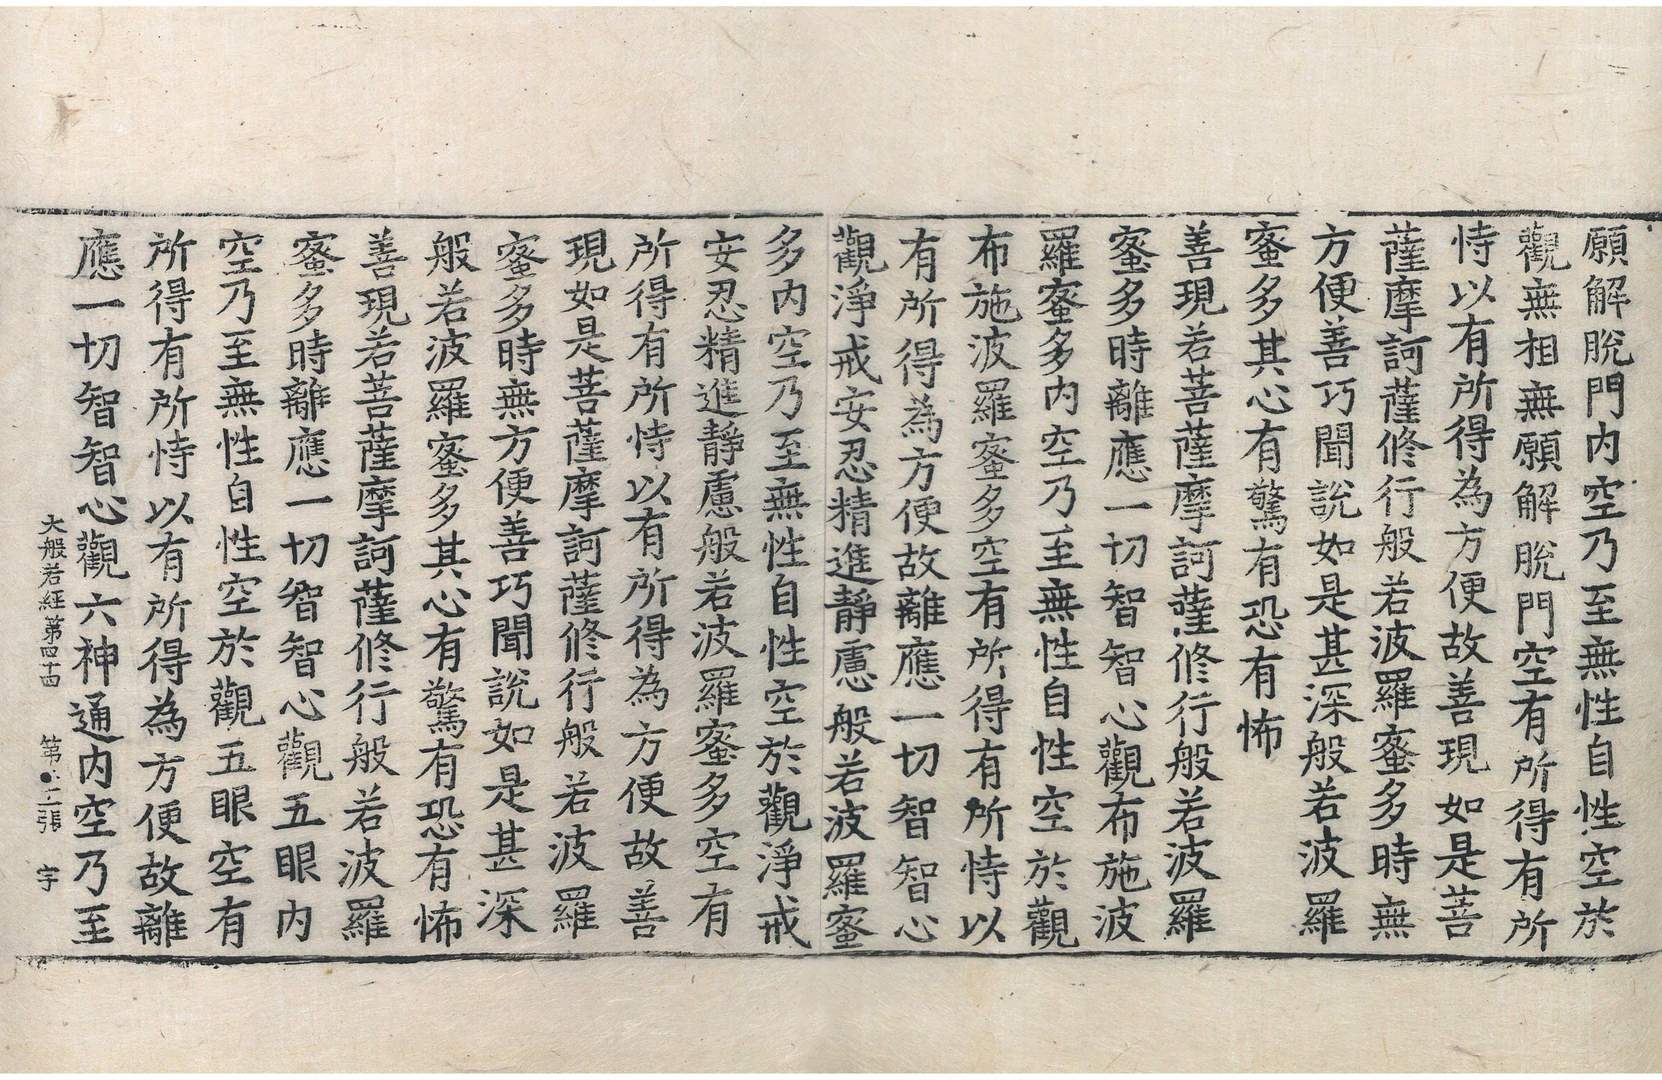 願解脫門內空乃至無性自性空於
觀無相無願解脫門空有所得有所
恃以有所得為方便故善現如是菩
薩摩訶薩修行般若波羅蜜多時無
方便善巧聞說如是甚深般若波羅
蜜多其心有驚有恐有怖
善現若菩薩摩訶薩修行般若波羅
蜜多時離應一切智智心觀布施波
羅蜜多內空乃至無性自性空於觀
布施波羅蜜多空有所得有所恃以
有所得為方便故離應一切智智心
觀淨戒安忍精進靜慮般若波羅蜜
多內空乃至無性自性空於觀淨戒
安忍精進靜慮般若波羅蜜多空有
所得有所恃以有所得為方便故善
現如是菩薩摩訶薩修行般若波羅
蜜多時無方便善巧聞說如是甚深
般若波羅蜜多其心有驚有恐有怖
善現若菩薩摩訶薩修行般若波羅
蜜多時離應一切智智心觀五眼內
空乃至無性自性空於觀五眼空有
所得有所恃以有所得為方便故離
應一切智智心觀六神通內空乃至
大般若経第四十四 第 張 字